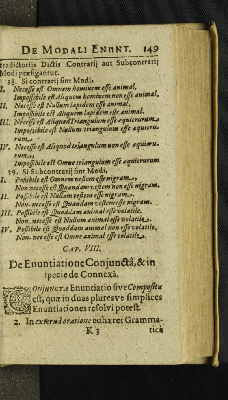 DE MODALI ENUNT. 149
tradictorijs Dictis Contrarij aut Subcontrarij
Modi præfigantur.
18. Si contrarij sint Modi,
I. Necesse est Omnem hominem esse animal,
Impossibile est Aliquem hominem non esse animal,
II. Necesse est Nullum lapidem esse animal,
Impossibile est Aliquem lapidem esse animal.
III. Necesse est Aliquod Triangulum esse æquicrurum,
Impossibile est Nullum triangulum esse æquicru-
rum.
IV. Necesse est Aliquod triangulum non esse æquicru-
rum,
Impossibile est Omne triangulum esse æquicrurum
19. Si Subcontrarij sint Modi,
I. Possibile est Omnem vestem esse nigram,
Non necesse est Quandam vestem non esse nigram,
II. Possibile est Nullam vestem esse nigram,
Non necesse est Quandam vestem esse nigram.
III. Possibile est Quoddam animal esse volatile,
Non necesse est Nullum animal esse volatile,
IV. Possibile est Quoddam animal non esse volatile,
Non necesse est Omne animal esse volatile.
CAP. VIII.
De Enuntiatione Conjunctâ, & in
specie de Connexâ.
CONJUNCTA Enuntiatio sive Composita
est, quæ in duas pluresve simplices
Enuntiationes resolvi potest.
2. In externâ oratione eu hæret Gramma-
K 3 tica